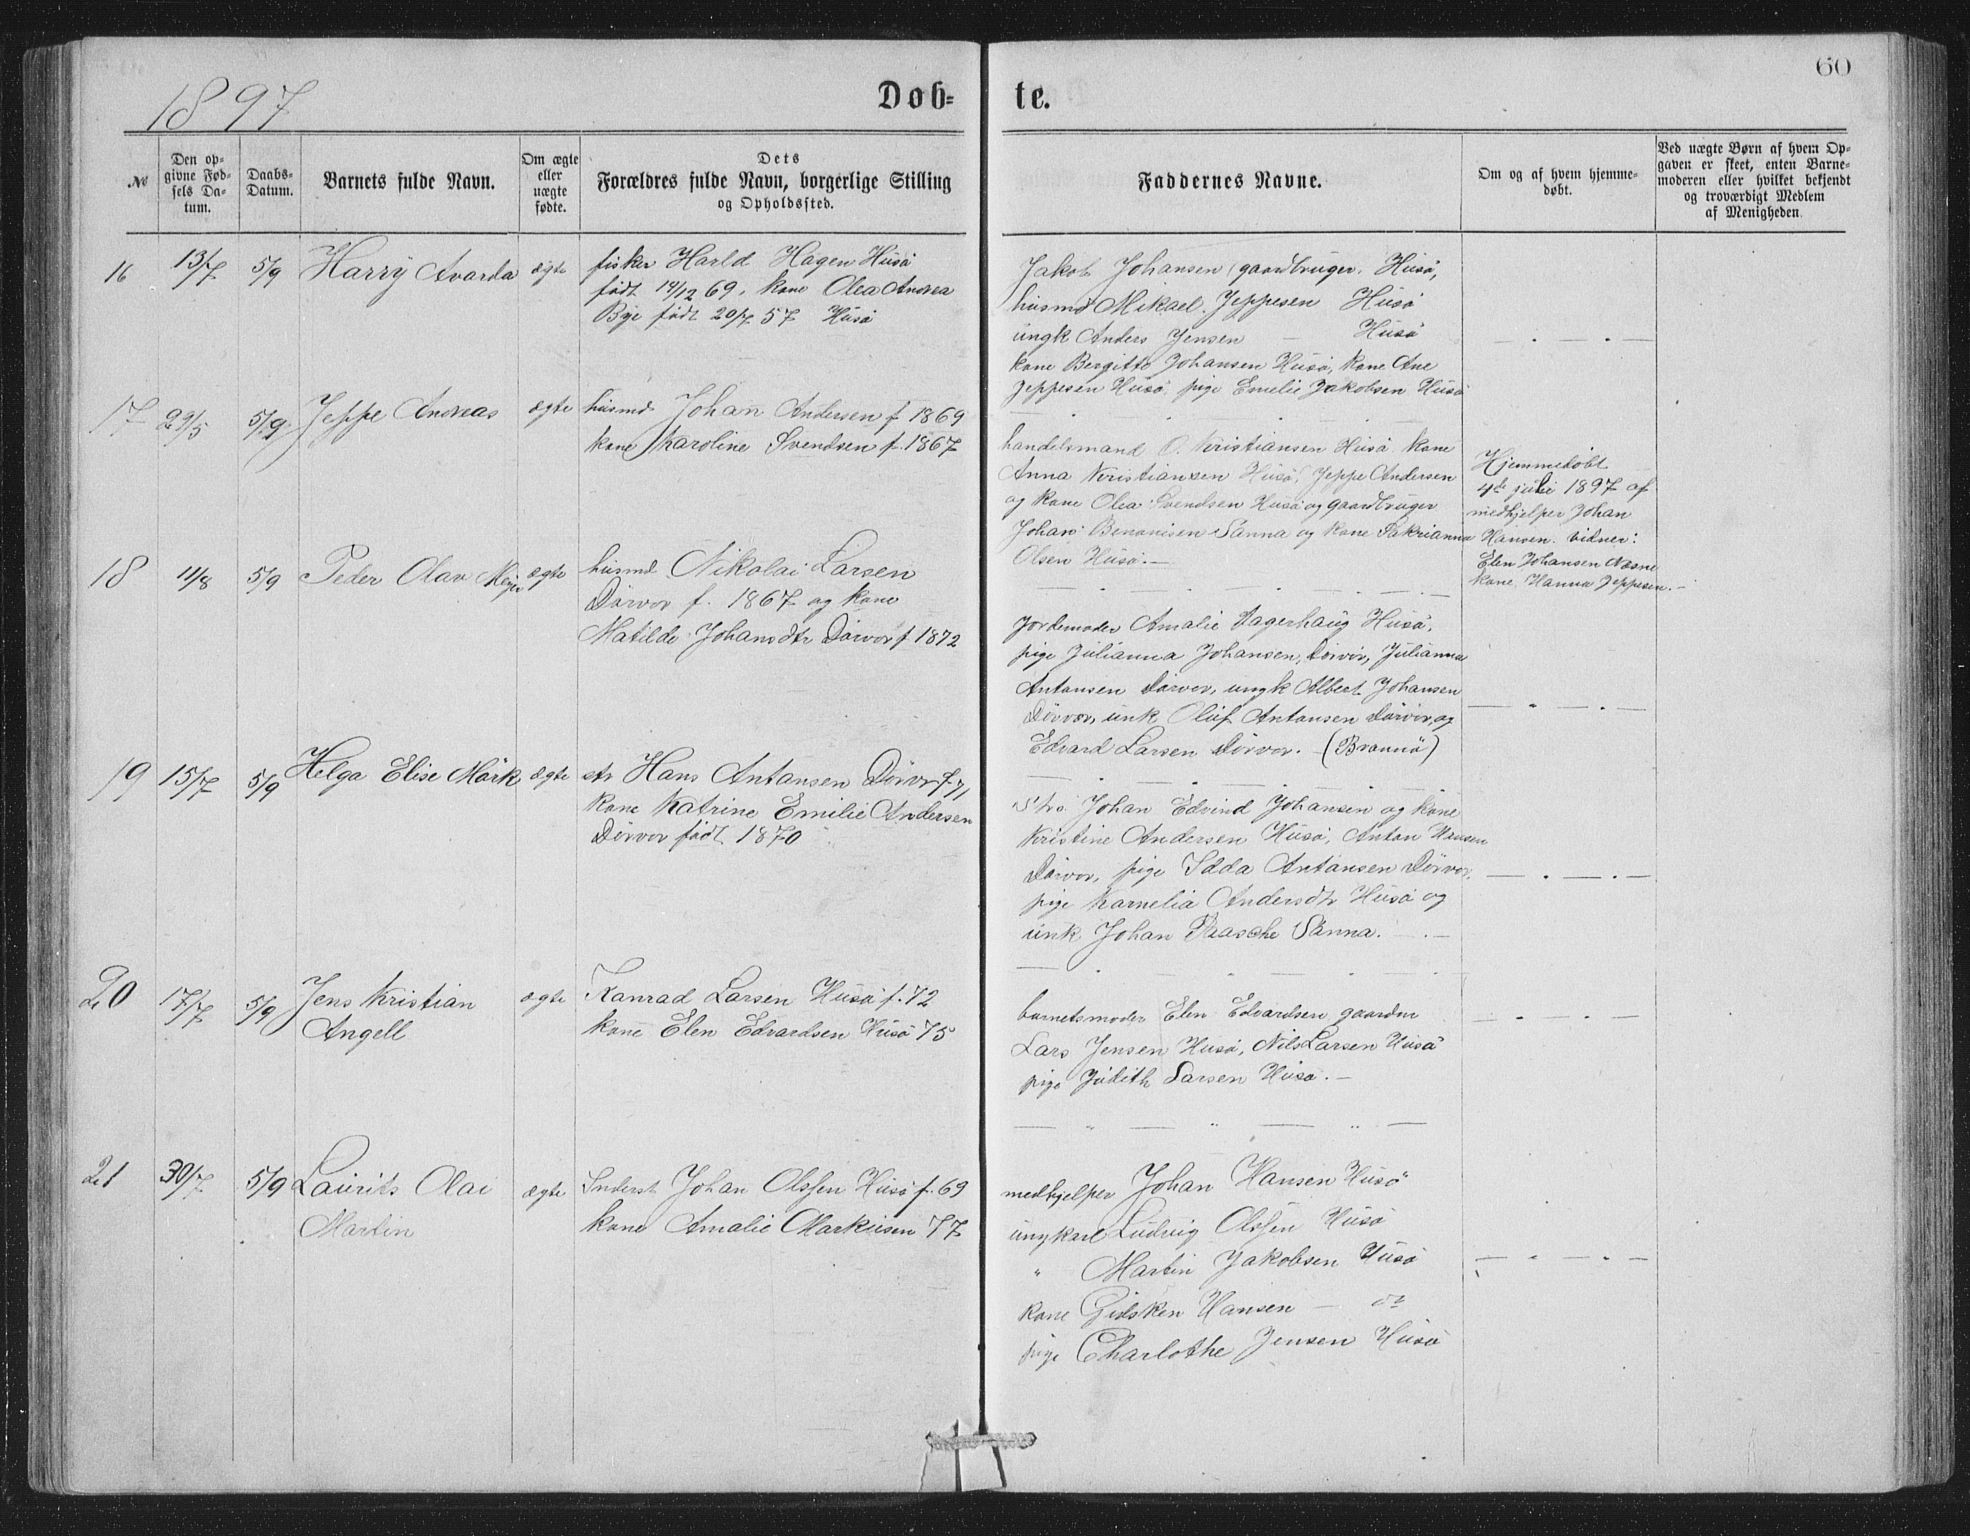 1897
Døb-
te.
60
№
Den op-
givne Fød-
sels Da-
tum.
Daabs-
Datum.
Barnets fulde Navn.
Om ægte
eller
uægte
fødte.
Dets
Forældres fulde Navn, borgerlige Stilling
og Opholdssted.
Faddernes Navne.
Om og af hvem hjemme-
døbt.
Ved uægte Børn af hvem Op-
gaven er skeet, enten Barne-
moderen eller hvilket bekjendt
og troværdigt Medlem
af Menigheden.
16 13/7 5/9 Harry Avarda ægte
fisker Harld Hagen Husø
født 14/12 69, kone Olea Andrea
Bye født 20/7 57 Husø
Jakob Johansen gaardbruger. Husø,
husmd Mikael Jeppesen Husø
ungk Anders Jensen — Husø
kone Bergitte Johansen Husø, kone Ane
Jeppesen Husø, pige Emelie Jakobsen Husø
17 29/5 5/9 Jeppe Andreas ægte
husmd Johan Andersen f 1869
kone Karoline Svendsen f. 1867
handelsmand O. Kristiansen Husø kone
Anna Kristiansen Husø, Jeppe Andersen
og kone Olea Svendsen Husø og gaardbruger
Johan Benonisen Sanna og kone Sakrianna
Olsen Husø. —
Hjemmedøbt
4de juli 1897 af
medhjelper Johan
Hansen. vidner:
Elen Johansen Næsne
kone Hanna Jeppesen. —
18 11/8 5/9 Peder Olav Meyer ægte
husmd Nikolai Larsen
Dørvor f. 1867 og kone
Matilde Johansdtr Dørvor f 1872
Jordemoder Amalie Hagerhaug Husø,
pige Julianna Johansen, Dørvor, Julianna
Antonsen Dørvor, ungk Albert Johansen
Dørvor, unk Oluf Antonsen Dørvor, og
Edvard Larsen Dørvor. (Brannø)
19 15/7 5/9 Helga Elise Mørk ægte
Hans Antonsen Dørvor f. 71
kone Katrine Emilie Andersen
Dørvor født 1870
Johan Edvind Johansen og kone
Kristine Andersen Husø, Anton Hansen
Dørvor, pige Idda Antonsen Dørvor,
pige Karnelia Andersdtr Husø og
unk Johan Paasche Sanna.
20 17/7 5/9 Jens Kristian
Angell
ægte
Konrad Larsen Husø f. 72
kone Elen Edvardsen Husø 75
barnetsmoder Elen Edvardsen gaardm
Lars Jensen Husø, Nils Larsen Husø
pige Judith Larsen Husø. —
21 30/7 5/9 Laurits Olai
Martin
ægte
Inderst Johan Olsen Husø f. 69
kone Amalie Markusen 77
medhjelper Johan Hansen Husø
ungkarl Ludvig Olsen Husø
" Martin Jakobsen Husø
kone Gidsken Hansen — do
pige Charlothe Jensen Husø